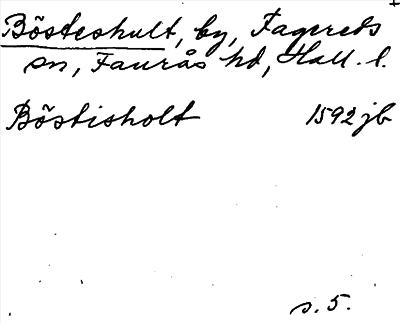 Bösteshult, by, Fagereds
sn, Faurås hd, Hall. l.
Böstisholt 1592 jb
s. 5.